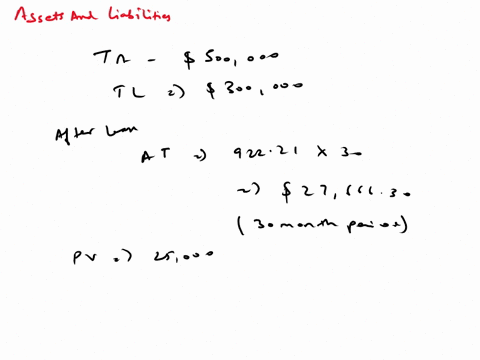 Assets And Liabilities
TA - $500,000
TL => $300,000
After loan
AT => 922.21 X 30
=> $27,666.30
(30 month period)
PV => 25,000